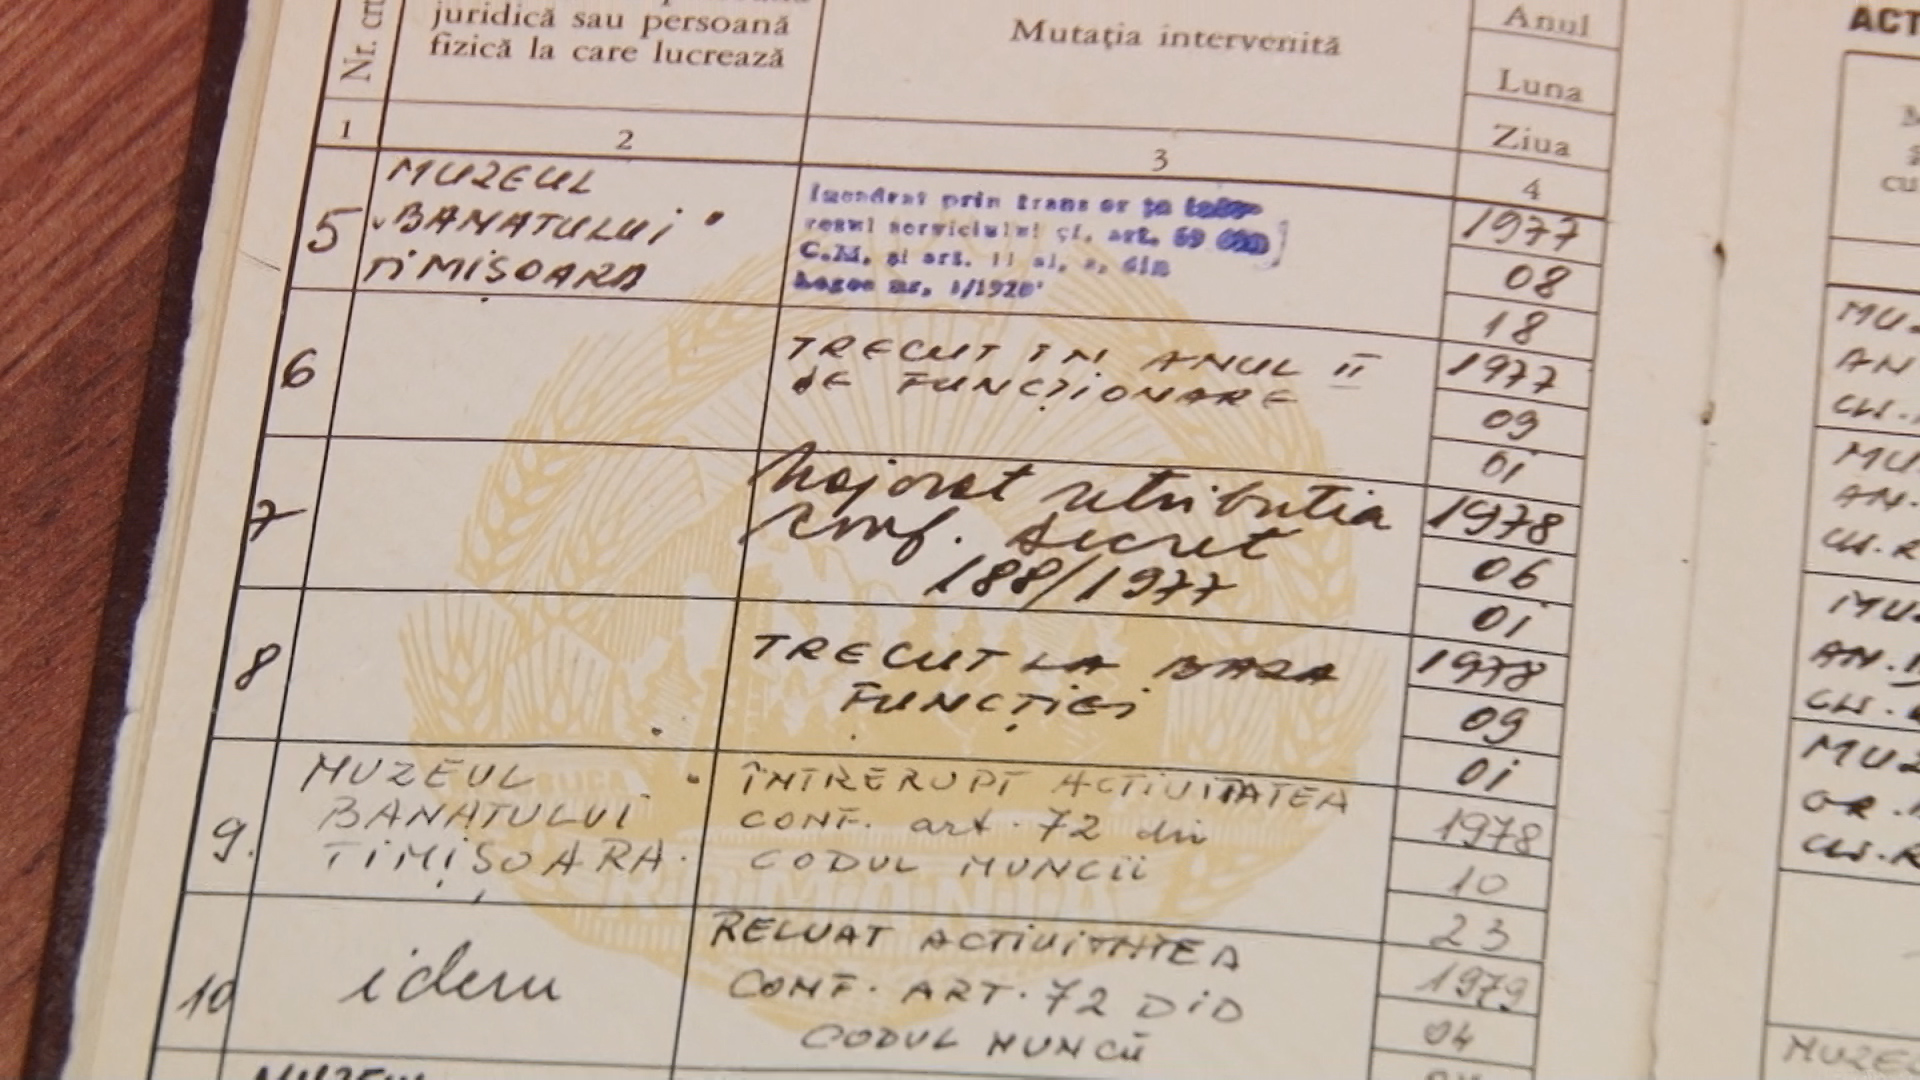 Nr. crt
juridică sau persoană
fizică la care lucrează
Mutația intervenită
Anul
Luna
Ziua
1
2
3
4
5
MUZEUL
BANATULUI
TIMIȘOARA
prin
resul serviciului cf. art. 69
C.M. și art. 11 al. din
Legea nr. 1/1970
1977
08
18
6
TRECUT IN ANUL II
DE FUNCȚIONARE
1977
09
01
7
Majorat retributia
conf. decret
188/1977
1978
06
01
8
TRECUT LA BAZA
FUNCȚIEI
1978
09
01
9.
MUZEUL
BANATULUI
TIMIȘOARA.
ÎNTRERUPT ACTIVITATEA
CONF. art. 72 din
CODUL MUNCII
1978
10
23
10
idem
RELUAT ACTIVITATEA
CONF. ART. 72 DID
CODUL MUNCII
1979
04
MUZEUL
ROMANIA
ACT
cu
MU
AN
CLS.
MU
AN.
CLS. R
MU
AN.
CLS.
MUZ
GR.
CLS. R
MUZE